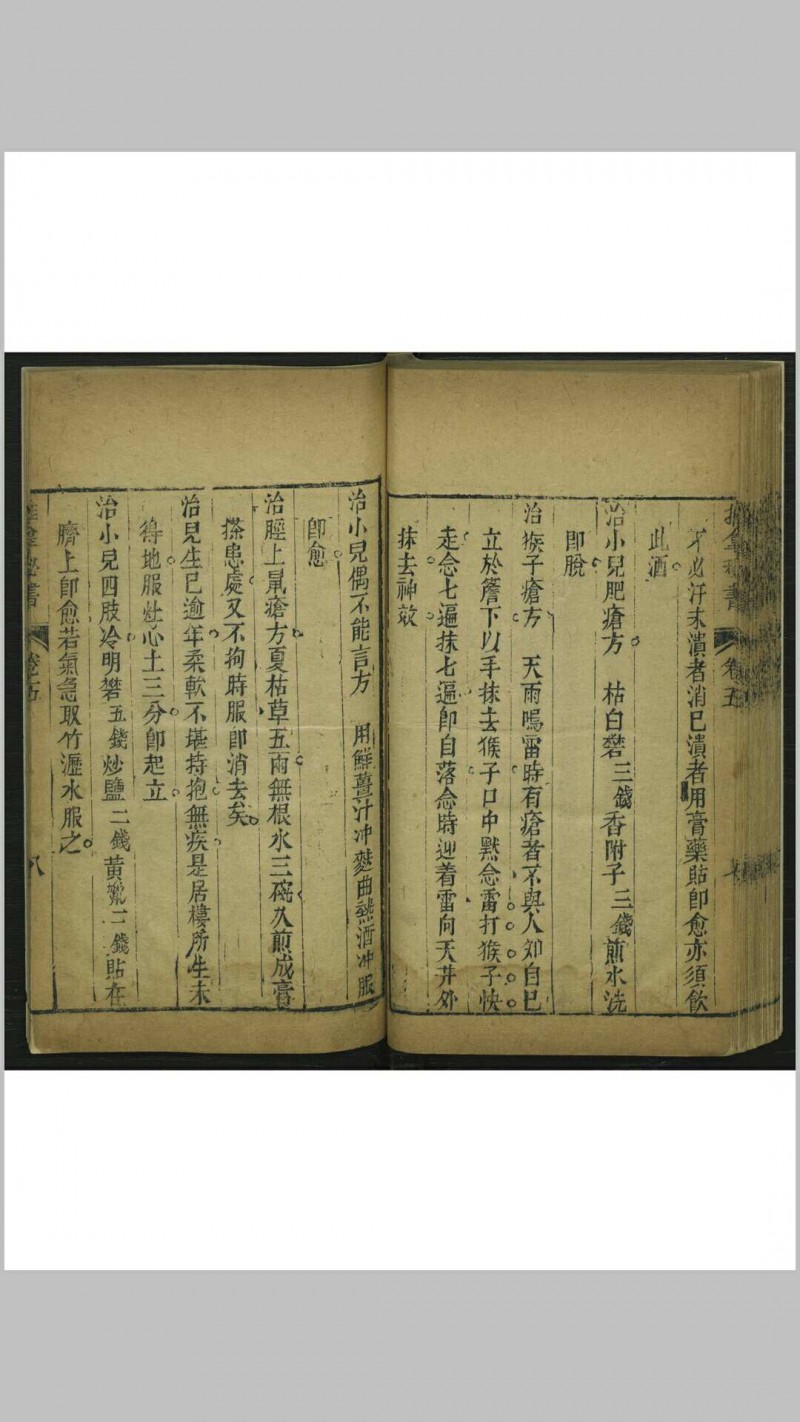 卷五
才必汗未潰者消已潰者用膏藥貼即愈亦須飲
此酒
治小兒肥瘡方 枯白礬三錢香附子三錢煎水洗
即脫
治猴子瘡方 天雨鳴雷時有瘡者不與人知自已
立於簷下以手抹去猴子口中黙念雷打猴子快
走念七遍抹七遍即自落念時迎着雷向天井外
抹去神效
治小兒偶不能言方 用鮮薑汁冲麯曲熱酒冲服
即愈
治脛上鼠瘡方夏枯草五兩無根水三碗久煎成膏
搽患處又不拘時服即消去矣
治兒生已逾年柔軟不堪持抱無疾是居樓所生未
得地服灶心土三分即起立
治小兒四肢冷明礬五錢炒鹽二錢黃蠟二錢貼在
臍上即愈若氣急取竹瀝水服之
書 卷五 八